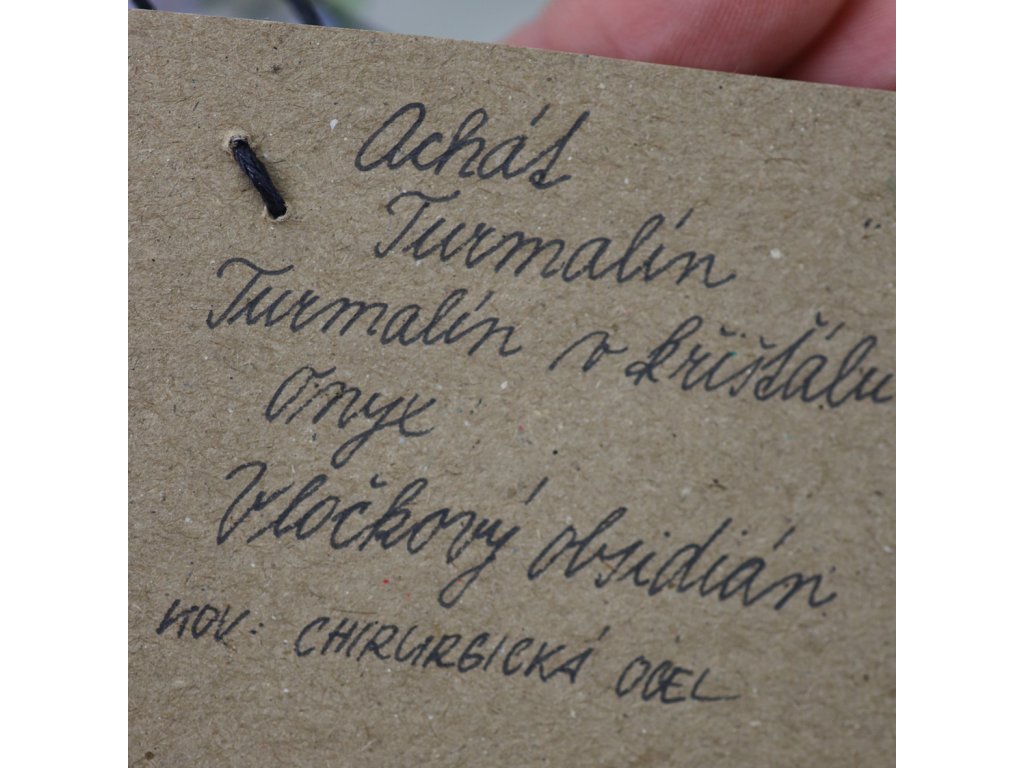 Achát
Turmalín
Turmalín v křišťálu
Onyx
Vločkový obsidián
KOV: CHIRURGICKÁ OCEL